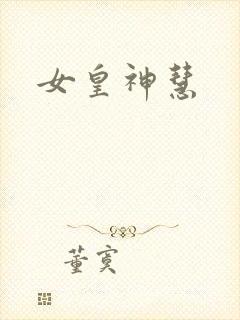 女皇神慧
董寞